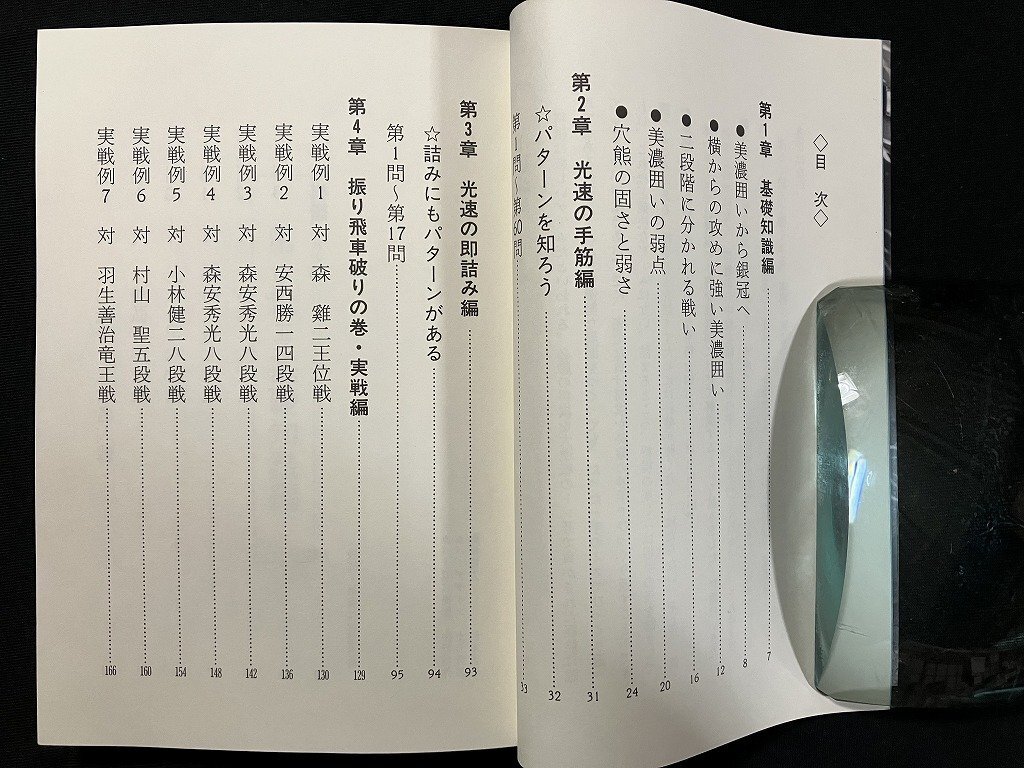 ◇目 次◇
第1章 基礎知識編 7
●美濃囲いから銀冠へ 8
●横からの攻めに強い美濃囲い 12
●二段階に分かれる戦い 16
●美濃囲いの弱点 20
●穴熊の固さと弱さ 24
第2章 光速の手筋編 31
☆パターンを知ろう 32
第1問～第60問 33
第3章 光速の即詰み編 93
☆詰みにもパターンがある 94
第1問～第17問 95
第4章 振り飛車破りの巻・実戦編 129
実戦例1 対 森 雞二王位戦 130
実戦例2 対 安西勝一四段戦 136
実戦例3 対 森安秀光八段戦 142
実戦例4 対 森安秀光八段戦 148
実戦例5 対 小林健二八段戦 154
実戦例6 対 村山 聖五段戦 160
実戦例7 対 羽生善治竜王戦 166